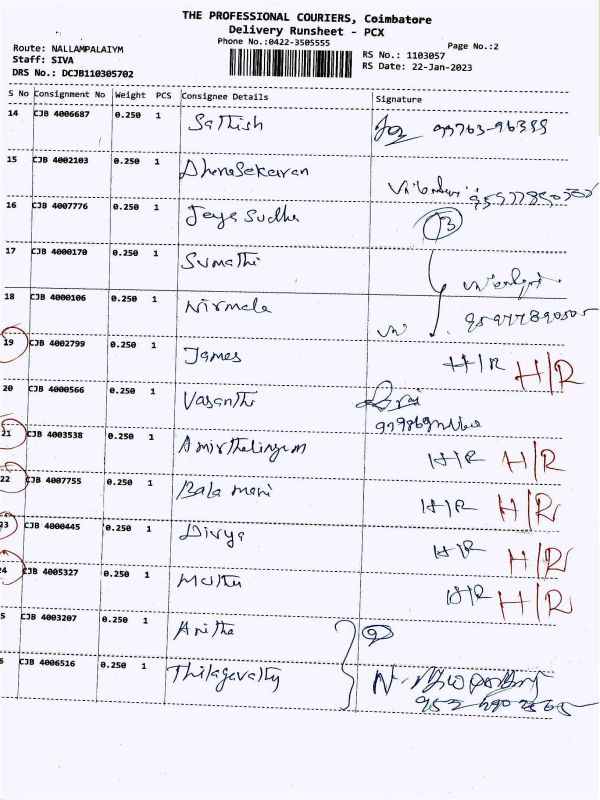 THE PROFESSIONAL COURIERS, Coimbatore
Delivery Runsheet - PCX
Phone No.:0422-3505555
Page No.:2
Route: NALLAMPALAIYM
Staff: SIVA
DRS No.: DCJB110305702
RS No.: 1103057
RS Date: 22-Jan-2023
S No Consignment No Weight PCS Consignee Details Signature
14 CJB 4006687 0.250 1 Sathish 99763-96355
15 CJB 4002103 0.250 1 Dhenasekaran
16 CJB 4007776 0.250 1 Jeya Sudha 3
17 CJB 4000170 0.250 1 Sumathi
18 CJB 4000106 0.250 1 Nirmala
19 CJB 4002799 0.250 1 James H/R H/R
20 CJB 4000566 0.250 1 Vasanthi
21 CJB 4003538 0.250 1 Amirthalingam H/R H/R
22 CJB 4007755 0.250 1 Bala mani H/R H/R
23 CJB 4000445 0.250 1 Divya H/R H/R
24 CJB 4005327 0.250 1 Muthu H/R H/R
5 CJB 4003207 0.250 1 Anitha 2
6 CJB 4006516 0.250 1 Thilagavathy